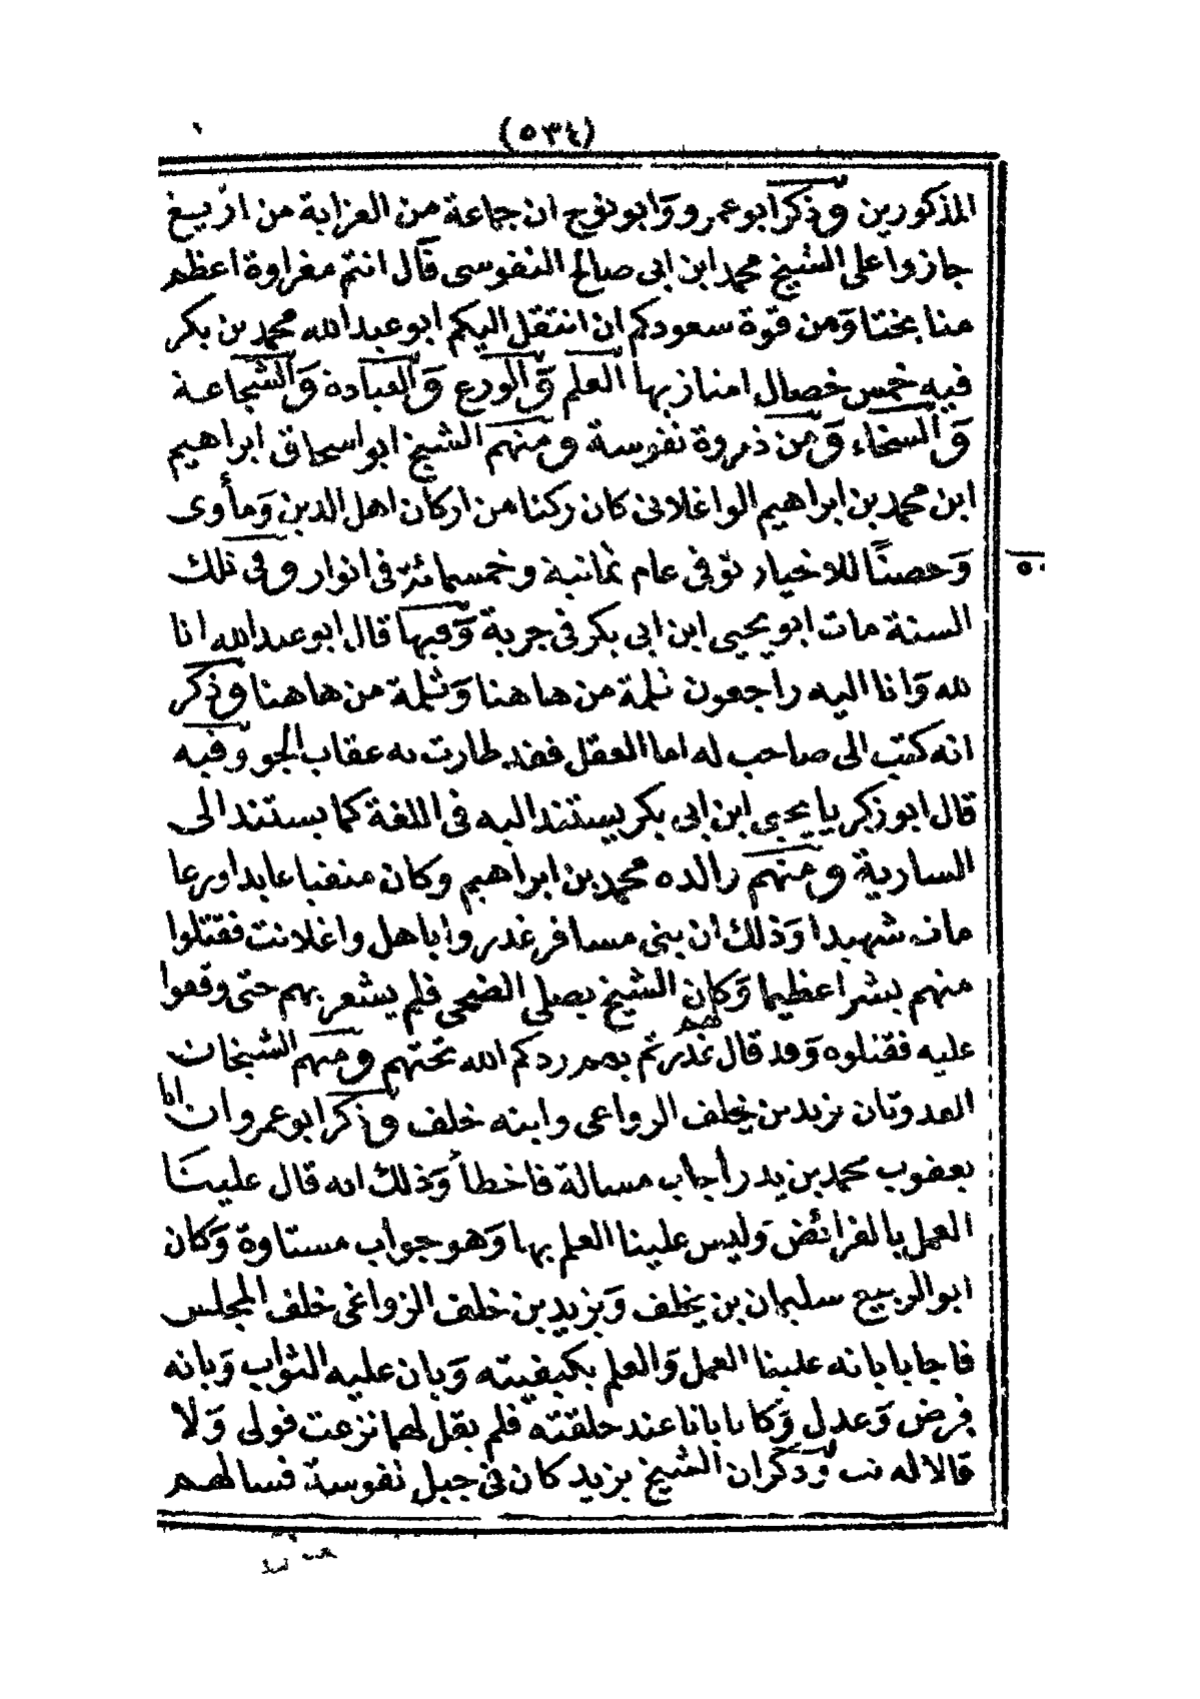 (٥٣٤)
المذكورين وذكر ابو عمرو وابو نوح ان جماعة من العزابة من اريغ
جازوا على الشيخ محمد ابن ابى صالح النفوسى قال انتم مغراوة اعظم
منا بختا ومن قوة سعودكم ان انتقل اليكم ابو عبد الله محمد بن بكر
فيه خمس خصال امتاز بها العلم والورع والعبادة والشجاعة
والسخاء ومن ذروة نفوسة ومنهم الشيخ ابو اسحاق ابراهيم
ابن محمد بن ابراهيم الواغلانى كان ركنا من اركان اهل الدين ومأوى
وحصنًا للاخيار توفى عام ثمانية وخمسمائة فى انوار وفى تلك
السنة مات ابو يحيى ابن ابى بكر فى جربة وفيها قال ابو عبد الله انا
لله وانا اليه راجعون ثلمة من هاهنا وثلمة من هاهنا وذكر
انه كتب الى صاحب له اما العقل فقد طارت به عقاب الجو وفيه
قال ابو زكرياء يحيى ابن ابى بكر يستند اليه فى اللغة كما يستند الى
السارية ومنهم والده محمد بن ابراهيم وكان متقيا عابدا ورعا
مات شهيدا وذلك ان بنى مسافر غدروا باهل واغلانت فقتلوا
منهم بشرا عظيما وكان الشيخ يصلى الضحى فلم يشعر بهم حتى وقعوا
عليه فقتلوه وقد قال لهم غدرتم بعم ردكم الله تحتهم ومنهم الشيخان
العدوتان يزيد بن يخلف الزواغى وابنه خلف وذكر ابو عمرو ان ابا
يعقوب محمد بن يدر اجاب مسالة فاخطأ وذلك انه قال علينا
العمل بالفرائض وليس علينا العلم بها وهو جواب مستاوة وكان
ابو الربيع سليمان بن يخلف ويزيد بن خلف الزواغى خلف المجلس
فاجابا بانه علينا العمل والعلم بكيفيته وبان عليه الثواب وبانه
فرض وعدل وكانا باتا عند حلقته فلم يقل لهما نزعت قولى ولا
قالا له تب وذكر ان الشيخ يزيد كان فى جبل نفوسة فسالهم